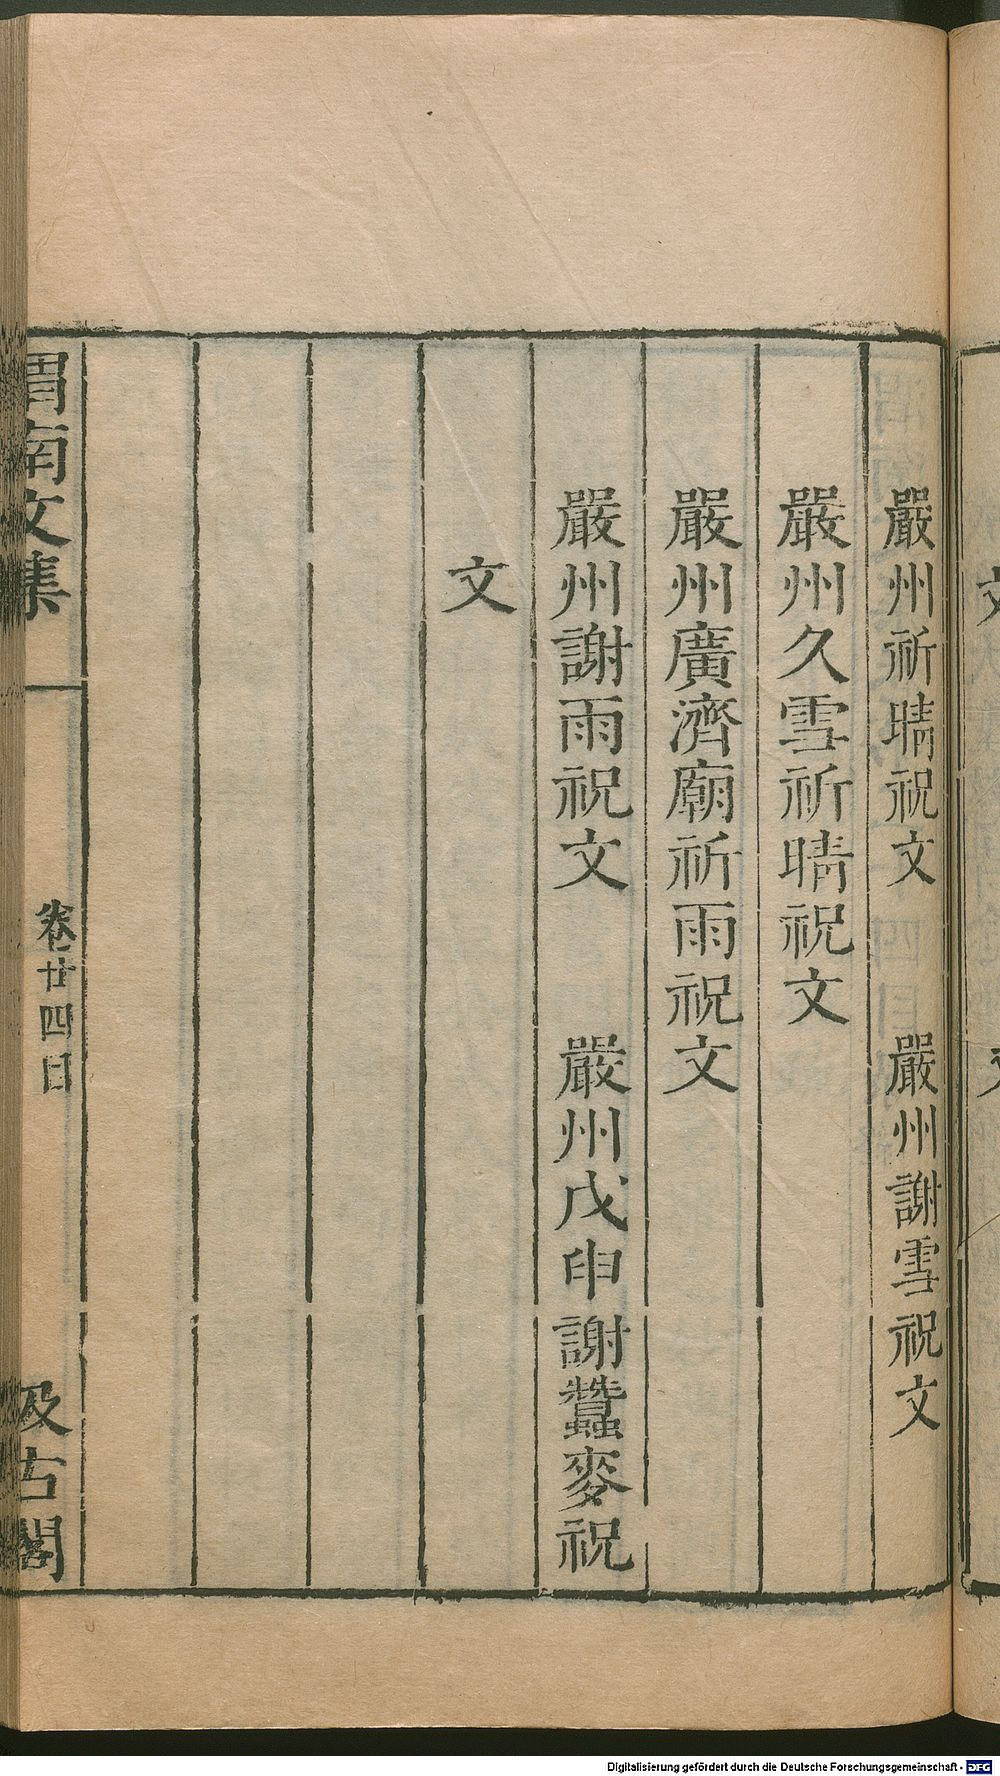 嚴州祈晴祝文　嚴州謝雪祝文
嚴州久雪祈晴祝文
嚴州廣濟廟祈雨祝文
嚴州謝雨祝文　嚴州戊申謝蠶麥祝
文
渭南文集　卷廿四目　汲古閣
Digitalisierung gefördert durch die Deutsche Forschungsgemeinschaft - DFG